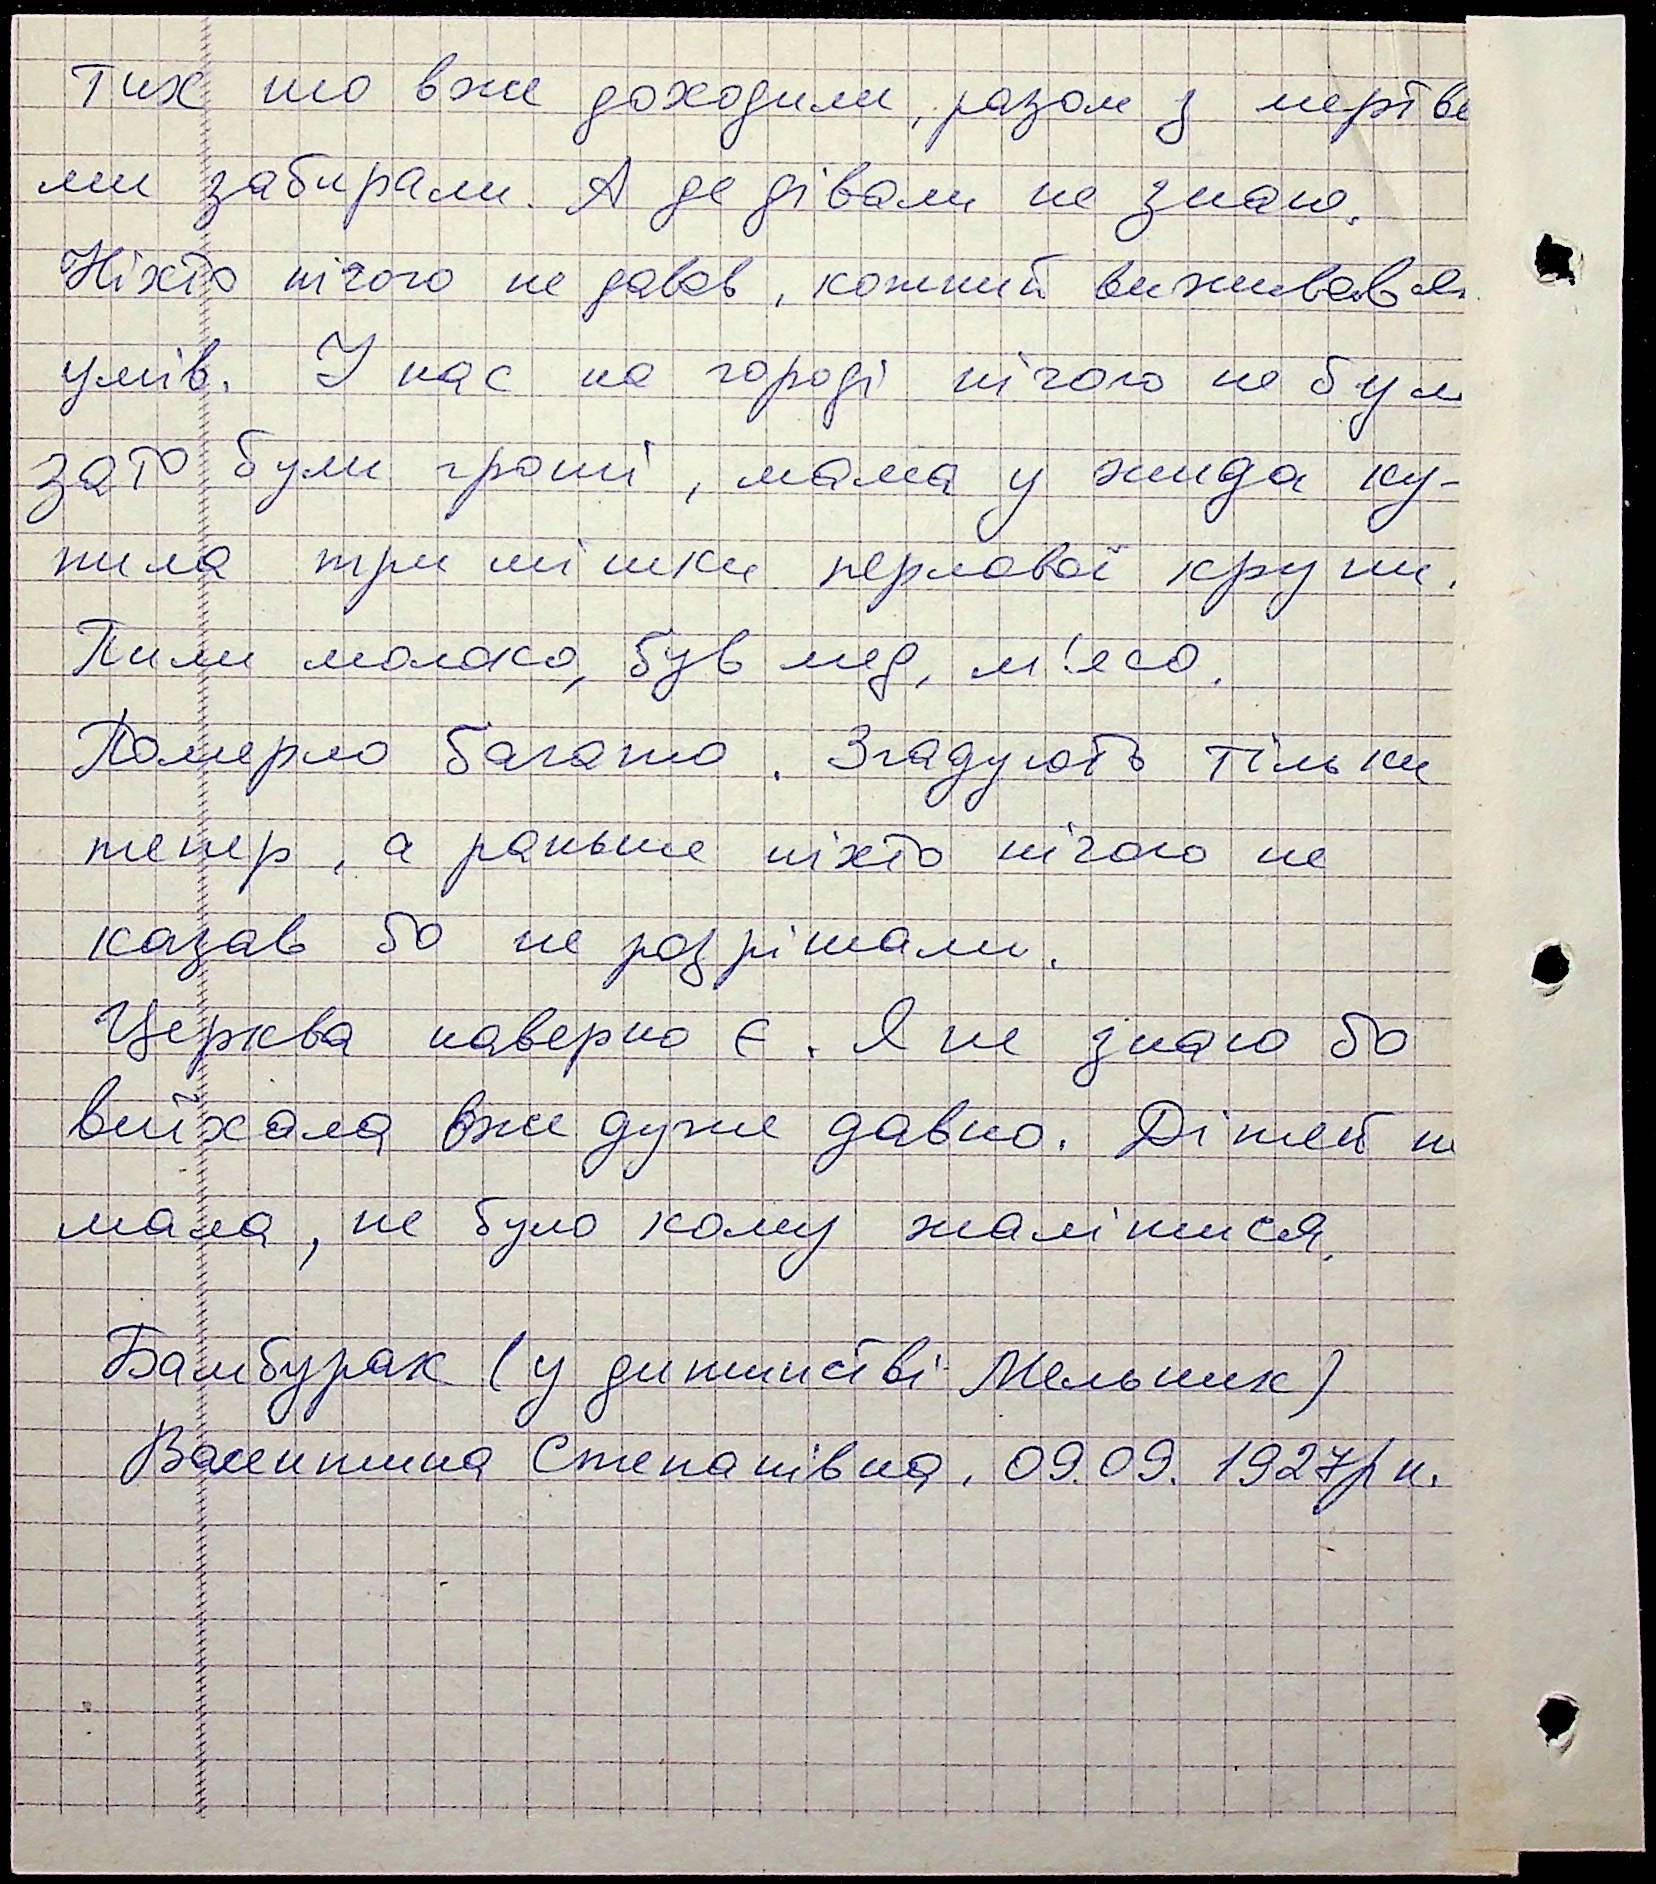 Тих шо вже доходили, разом з мертви
ми забирали. А де дівали не знаю.
Ніхто нічого не давав, кожний виживав як
умів. У нас на городі нічого не було
зато були гроші, мама у жида ку-
пила три мішки перлової крупи.
Пили молоко, був мед, м'ясо.
Померло багато. Згадують тільки
тепер, а раньше ніхто нічого не
казав бо не розрішали.
Церква наверно є. Я не знаю бо
виїхала вже дуже давно. Дітей не
мала, не було кому жалітися.
Бамбурак (у дитинстві Мельник)
Валентина Степанівна, 09.09.1927р н.